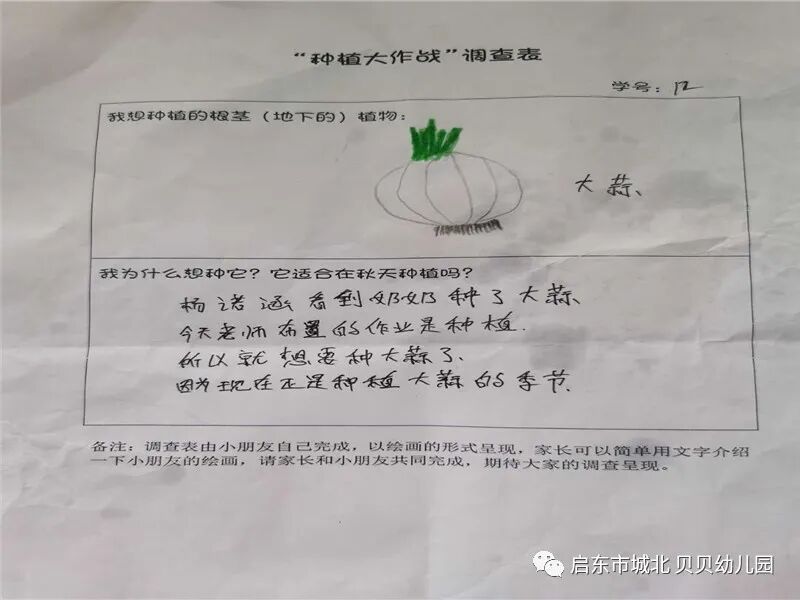 “种植大作战”调查表
学号：12
我想种植的根茎（地下的）植物：
大蒜、
我为什么想种它？它适合在秋天种植吗？
杨诺涵看到奶奶种了大蒜
今天老师布置的作业是种植.
所以就想要种大蒜了、
因为现在正是种植大蒜的季节、
备注：调查表由小朋友自己完成，以绘画的形式呈现，家长可以简单用文字介绍
一下小朋友的绘画，请家长和小朋友共同完成，期待大家的调查呈现。
启东市城北 贝贝幼儿园